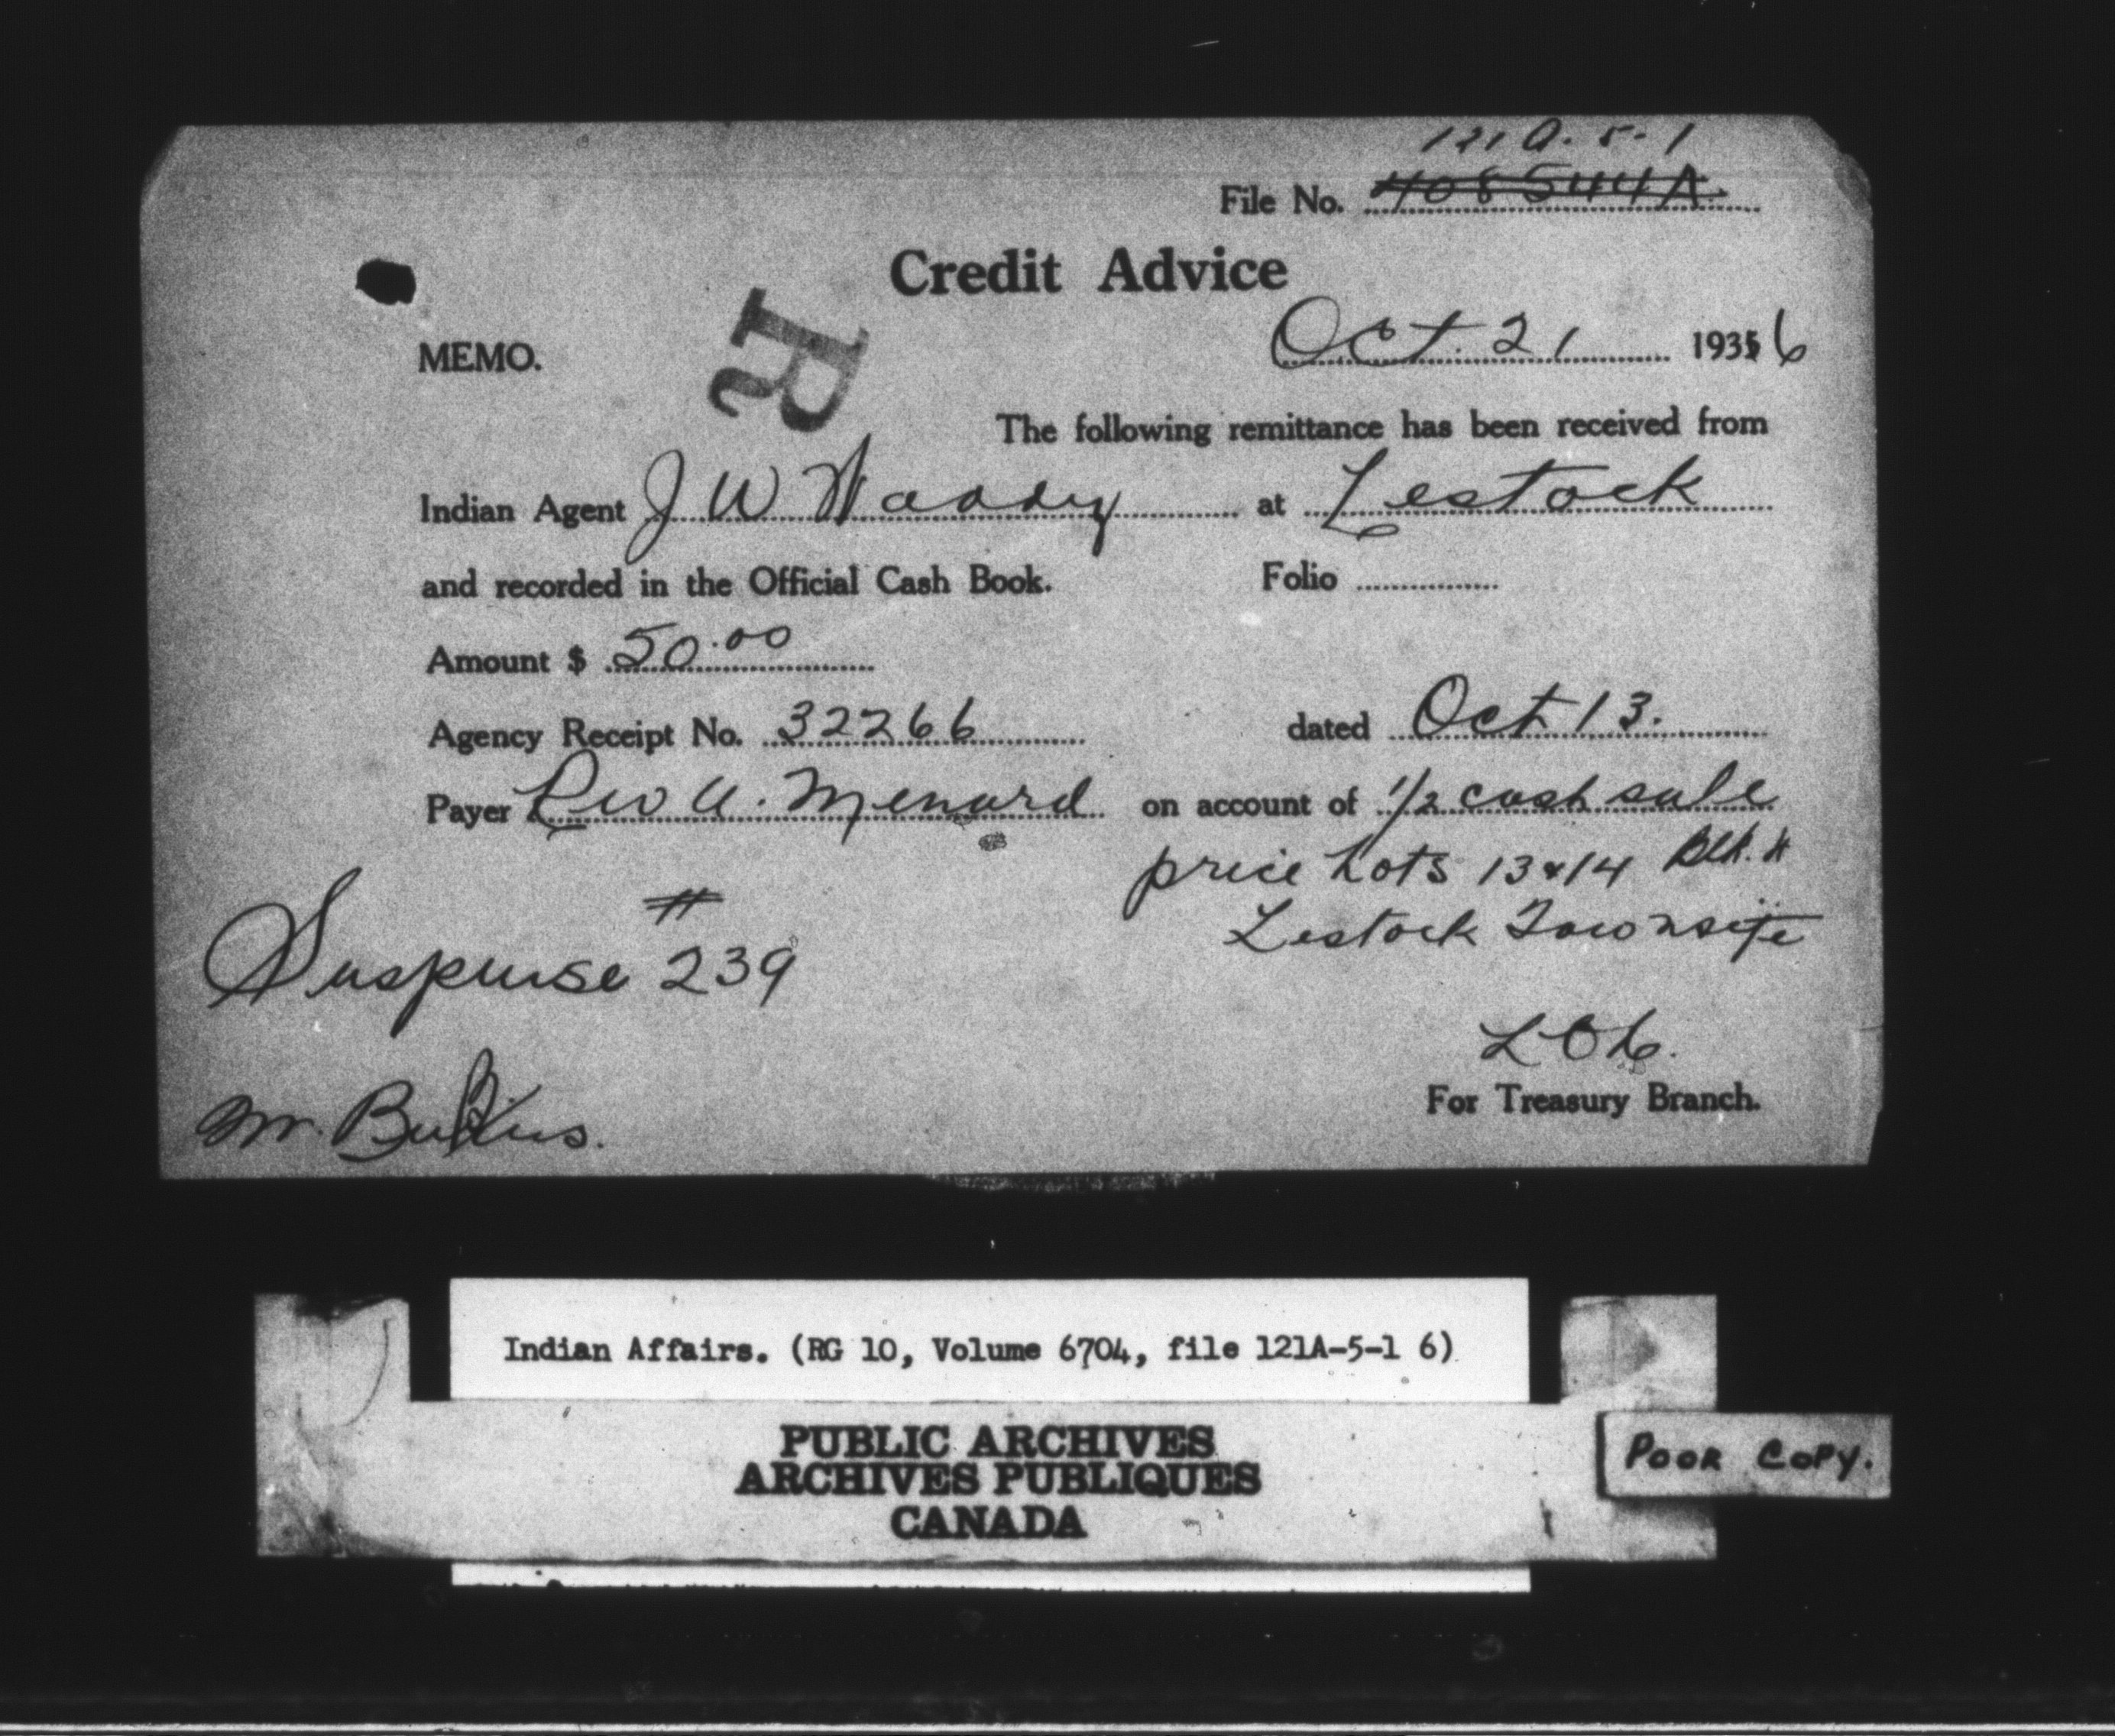 121 A. 5-1
File No. 408544A.
Credit Advice
R
MEMO.
Oct. 21 1935 6
The following remittance has been received from
Indian Agent J W Waddy at Lestock
and recorded in the Official Cash Book. Folio
Amount $ 50.00
Agency Receipt No. 32266 dated Oct 13.
Payer Rev A. Menard on account of 1/2 cash sale
price Lots 13 & 14 Blk.
Lestock Townsite
#
Suspense 239
For Treasury Branch.
Mr.
Indian Affairs. (RG 10, Volume 6704, file 121A-5-1 6)
PUBLIC ARCHIVES
ARCHIVES PUBLIQUES
CANADA
POOR COPY.